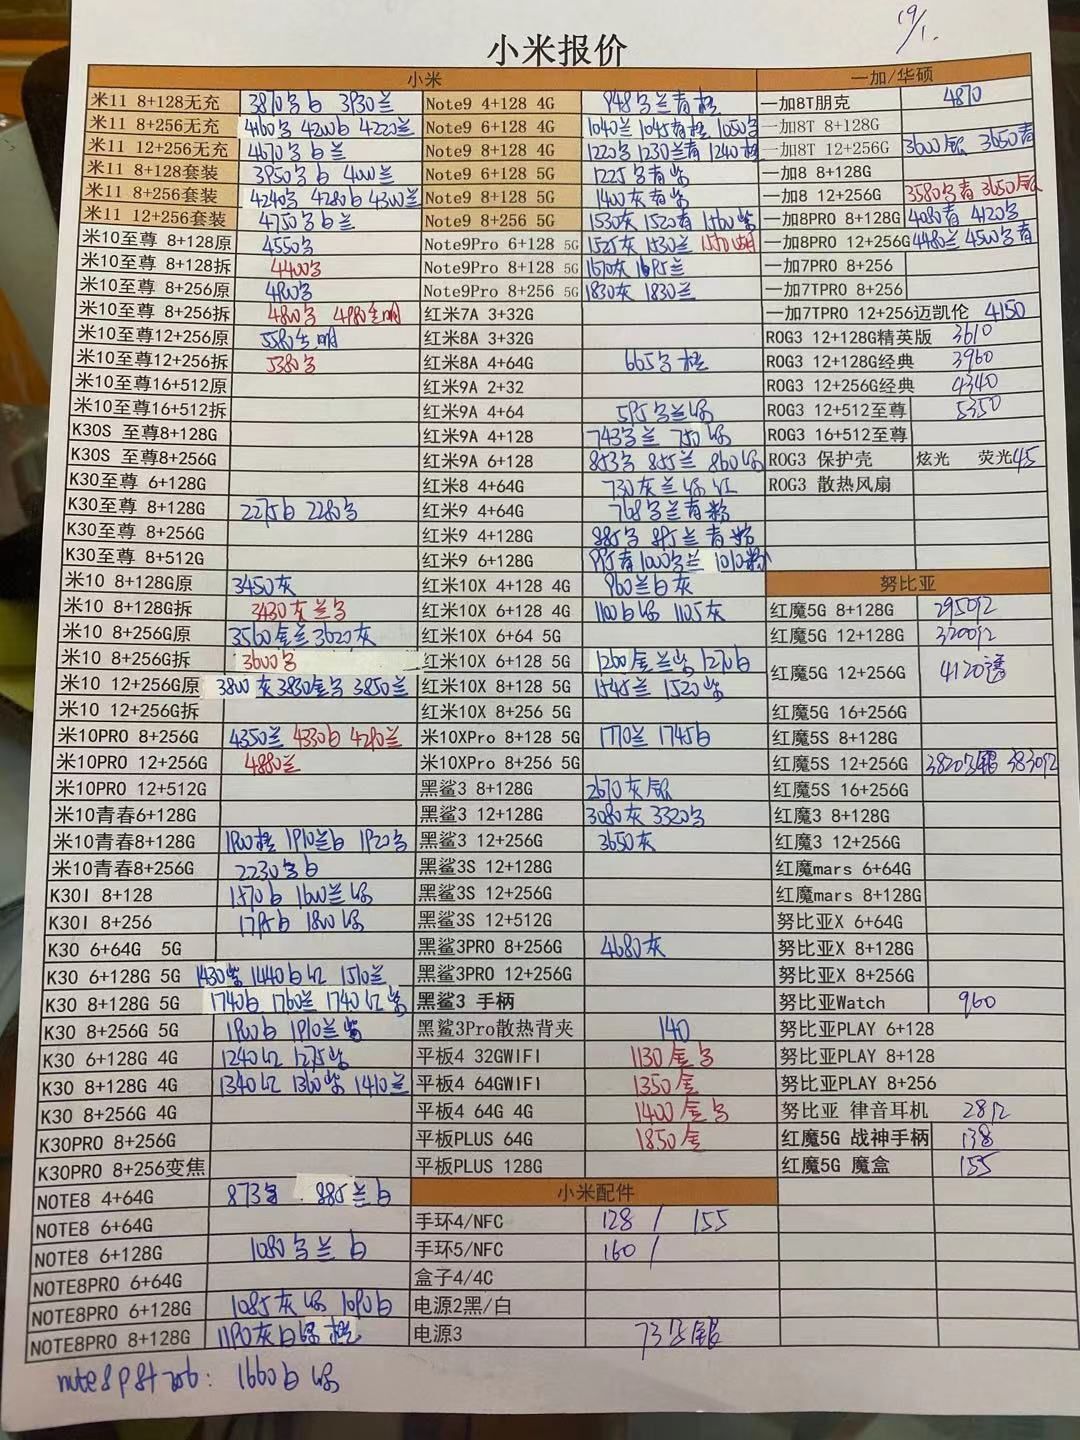 19/1.
小米报价
小米 一加/华硕
米11 8+128无充 3870 白 3930兰 Note9 4+128 4G 948 兰青 一加8T朋克 4870
米11 8+256无充 4160 4200白 4220兰 Note9 6+128 4G 1040兰 1045青 1050 一加8T 8+128G
米11 12+256无充 4670 白兰 Note9 8+128 4G 1220 1230兰青 1240 一加8T 12+256G 3600银 3650青
米11 8+128套装 3950 白 4000兰 Note9 6+128 5G 1225 青紫 一加8 8+128G
米11 8+256套装 4240 4280白 4300兰 Note9 8+128 5G 1400灰青紫 一加8 12+256G 3580 青 3650银
米11 12+256套装 4750 白兰 Note9 8+256 5G 1530灰 1520青 紫 一加8PRO 8+128G 4080青 4120
米10至尊 8+128原 4550 Note9Pro 6+128 5G 1525灰 1530兰 一加8PRO 12+256G 4480兰 4500 青
米10至尊 8+128拆 4400 Note9Pro 8+128 5G 1670灰 1695兰 一加7PRO 8+256
米10至尊 8+256原 4900 Note9Pro 8+256 5G 1830灰 1830兰 一加7TPRO 8+256
米10至尊 8+256拆 4800 透明 红米7A 3+32G 一加7TPRO 12+256迈凯伦 4150
米10至尊12+256原 透明 红米8A 3+32G ROG3 12+128G精英版 3610
米10至尊12+256拆 5380 红米8A 4+64G 665 ROG3 12+128G经典 3960
米10至尊16+512原 红米9A 2+32 ROG3 12+256G经典 4340
米10至尊16+512拆 红米9A 4+64 595 兰绿 ROG3 12+512至尊 5350
K30S 至尊8+128G 红米9A 4+128 743 兰 750绿 ROG3 16+512至尊
K30S 至尊8+256G 红米9A 6+128 853 855兰 860绿 ROG3 保护壳 炫光 荧光45
K30至尊 6+128G 红米8 4+64G 730灰兰绿红 ROG3 散热风扇
K30至尊 8+128G 2275白 2280 红米9 4+64G 768 兰青粉
K30至尊 8+256G 红米9 4+128G 885 895兰青粉
K30至尊 8+512G 红米9 6+128G 995青1000 兰 1010粉
米10 8+128G原 3450灰 红米10X 4+128 4G 960兰白灰 努比亚
米10 8+128G拆 3430灰兰 红米10X 6+128 4G 1100白绿 1105灰 红魔5G 8+128G 2950红
米10 8+256G原 3560金兰3620灰 红米10X 6+64 5G 红魔5G 12+128G 3200红
米10 8+256G拆 3600 红米10X 6+128 5G 1260金兰紫 1270白 红魔5G 12+256G 4120透
米10 12+256G原 3800灰3830金 3850兰 红米10X 8+128 5G 1545兰 1520紫
米10 12+256G拆 红米10X 8+256 5G 红魔5G 16+256G
米10PRO 8+256G 4350兰 4330白 4290兰 米10XPro 8+128 5G 1770兰 1745白 红魔5S 8+128G
米10PRO 12+256G 4880兰 米10XPro 8+256 5G 红魔5S 12+256G 3820 银 3830红
米10PRO 12+512G 黑鲨3 8+128G 2670灰银 红魔5S 16+256G
米10青春6+128G 黑鲨3 12+128G 3080灰 3320 红魔3 8+128G
米10青春8+128G 1900 1910兰白 1920 黑鲨3 12+256G 3650灰 红魔3 12+256G
米10青春8+256G 2230 白 黑鲨3S 12+128G 红魔mars 6+64G
K30I 8+128 1570白 1600兰绿 黑鲨3S 12+256G 红魔mars 8+128G
K30I 8+256 1795白 1800绿 黑鲨3S 12+512G 努比亚X 6+64G
K30 6+64G 5G 黑鲨3PRO 8+256G 4680灰 努比亚X 8+128G
K30 6+128G 5G 1430紫 1440白红 1510兰 黑鲨3PRO 12+256G 努比亚X 8+256G
K30 8+128G 5G 1740白 1760兰 1740红紫 黑鲨3 手柄 努比亚Watch 960
K30 8+256G 5G 1900白 1910兰紫 黑鲨3Pro散热背夹 140 努比亚PLAY 6+128
K30 6+128G 4G 1240红 1275紫 平板4 32GWIFI 1130金 努比亚PLAY 8+128
K30 8+128G 4G 1340红 1360紫 1410兰 平板4 64GWIFI 1350金 努比亚PLAY 8+256
K30 8+256G 4G 平板4 64G 4G 1400金 努比亚 律音耳机 28红
K30PRO 8+256G 平板PLUS 64G 1850金 红魔5G 战神手柄 138
K30PRO 8+256变焦 平板PLUS 128G 红魔5G 魔盒 155
NOTE8 4+64G 873 885兰白 小米配件
NOTE8 6+64G 手环4/NFC 128 / 155
NOTE8 6+128G 1080 兰白 手环5/NFC 160 /
NOTE8PRO 6+64G 盒子4/4C
NOTE8PRO 6+128G 1085灰绿 1090白 电源2黑/白
NOTE8PRO 8+128G 1190灰白绿 电源3 73 银
note8p8+256: 1660白绿